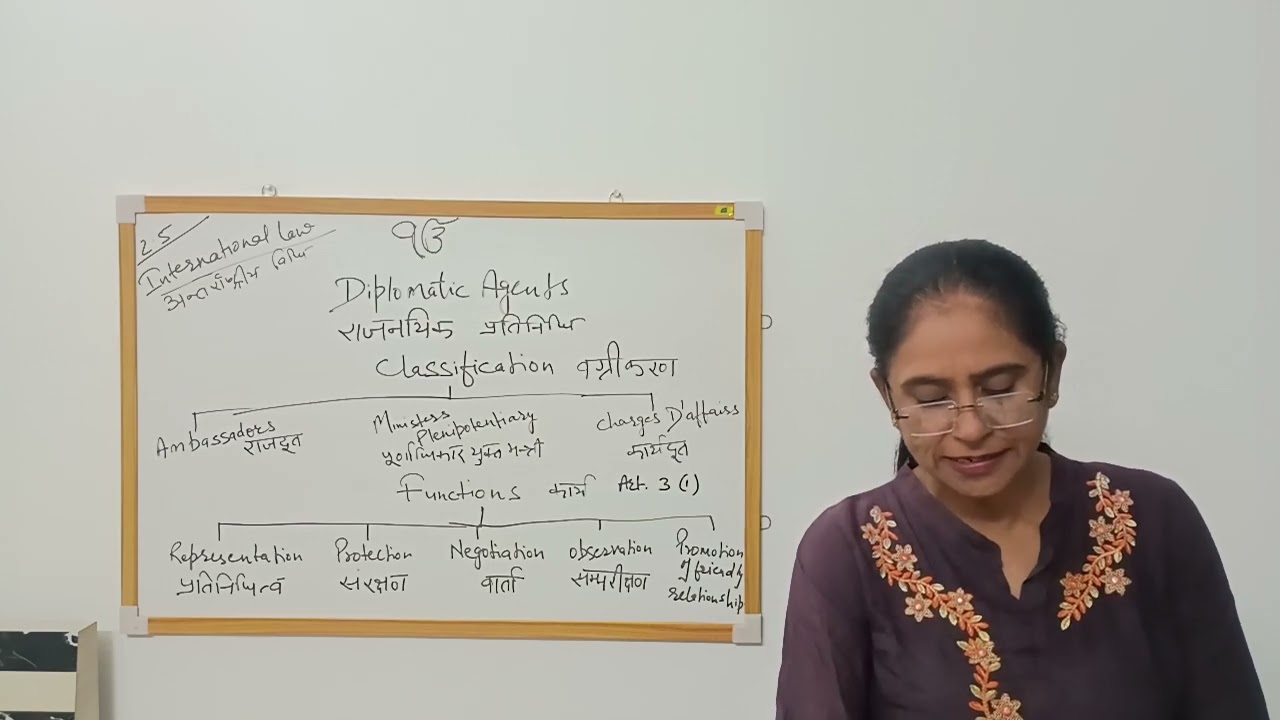 25
International Law
अन्तर्राष्ट्रीय विधि
ੴ
Diplomatic Agents
राजनयिक प्रतिनिधि
Classification वर्गीकरण
Ambassadors
राजदूत
Ministers
Plenipotentiary
पूर्णाधिकार युक्त मन्त्री
Charges D'affairs
कार्यदूत
Functions कार्य Art. 3 (1)
Representation
प्रतिनिधित्व
Protection
संरक्षण
Negotiation
वार्ता
observation
सम्परीक्षण
Promotion
of friendly
relationship